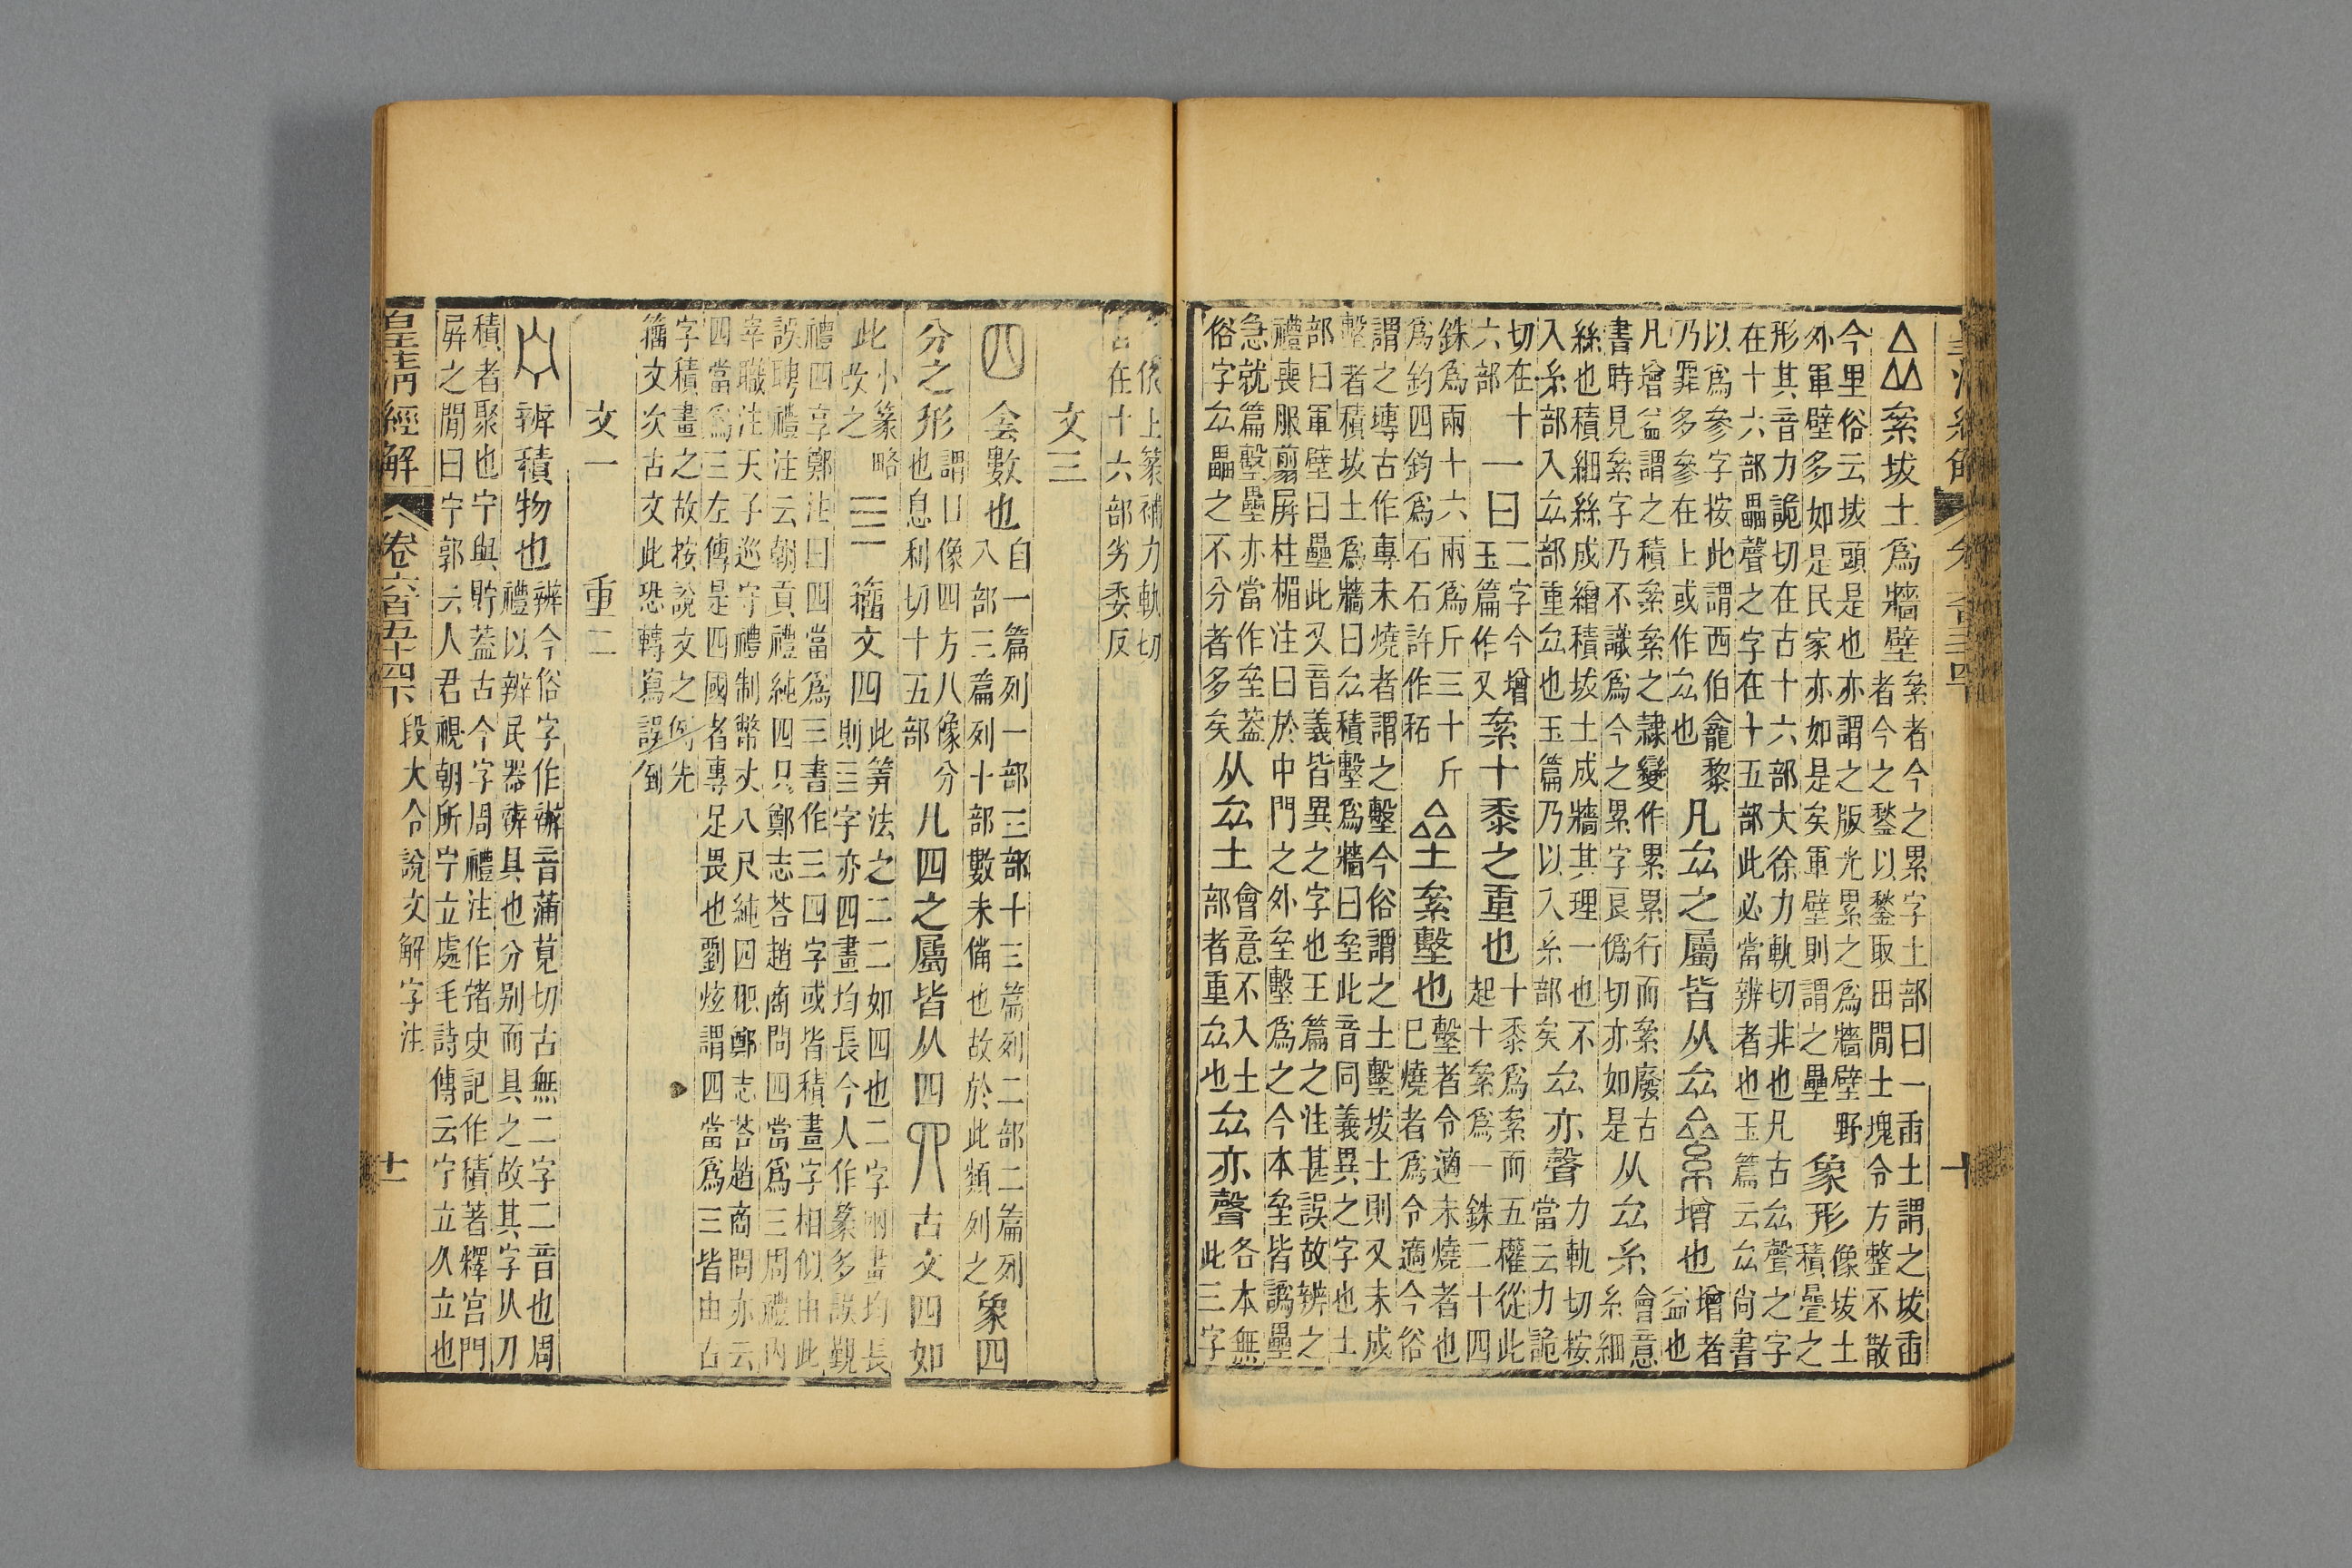 皇清經解
十
厽 絫坺土爲牆壁 絫者今之累字土部曰一臿土謂之坺臿
者今之墼以墼取田閒土塊令方整不散
今里俗云坺頭是也亦謂之版光累之爲牆壁野
外軍壁多如是民家亦如是矣軍壁則謂之壘
象形 像坺土
積疊之
形其音力詭切在古十六部大徐力軌切非也凡古厽聲之字
在十六部畾聲之字在十五部此必當辨者也玉篇云厽尚書
以爲參字按此謂西伯龕黎
乃罪多參在上或作厽也
凡厽之屬皆从厽 絫 增也 增者
益也
凡增益謂之積絫絫之隸變作累累行而絫廢古
書時見絫字乃不識爲今之累字㒱僞切亦如是
从厽糸 會意
糸細
絲也積細絲成繒積坺土成牆其理一也不
入糸部入厽部重厽也玉篇乃以入糸部矣
厽亦聲 力軌切按
當云力詭
切在十
六部
一曰 二字今增
玉篇作又
絫十黍之重也 十黍爲絫而五權從此
起十絫爲一銖二十四
銖爲兩十六兩爲斤三十斤
爲鈞四鈞爲石石許作䄷
垒 絫墼也 墼者令適未燒者也
已燒者爲令適今俗
謂之塼古作專未燒者謂之墼今俗謂之土墼坺土則又未成
墼者積坺土爲牆曰厽積墼爲牆曰垒此音同義異之字也土
部曰軍壁曰壘此又音義皆異之字也王篇之注甚誤故辨之
禮喪服翦屏柱楣注曰於中門之外垒墼爲之今本垒皆譌壘
急就篇墼壘亦當作垒蓋
俗字厽畾之不分者多矣
从厽土 會意不入土
部者重厽也
厽亦聲 各本無
此三字
依上篆補力軌切
古在十六部劣委反
文三
四 侌數也 自一篇列一部三部十三篇列二部二篇列
八部三篇列十部數未備也故於此類列之
象四
分之形 謂囗像四方八像分
也息利切十五部
凡四之屬皆从四 𦉭 古文四如
此 小篆略
改之
亖 籒文四 此筭法之二二如四也二字兩畫均長
則亖字亦四畫均長今人作篆多誤覲
禮四享鄭注曰四當爲三書作三四字或皆積畫字相似由此
誤聘禮注云朝貢禮純四只鄭志荅趙商問四當爲三周禮內
宰職注天子巡守禮制幣丈八尺純四𠃨鄭志荅趙商問亦云
四當爲三左傳是四國者專足畏也劉炫謂四當爲三皆由古
字積畫之故按說文之例先
籒文次古文此恐轉寫誤倒
文一 重二
宁 辨積物也 辨今俗字作辦音蒲莧切古無二字二音也周
禮以辨民器辨具也分別而具之故其字从刀
積者聚也宁與貯蓋古今字周禮注作䝬史記作積著釋宮門
屏之閒曰宁郭云人君視朝所宁立處毛詩傳云宁立久立也
皇清經解 卷六百五十四下 段大令說文解字注
十一